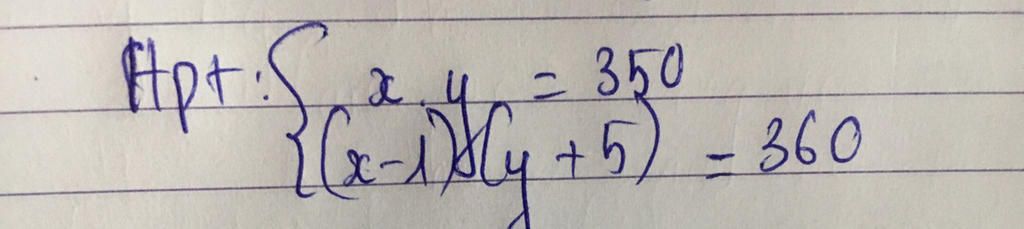 Hpt: { x.y = 350
(x-1)(y+5) = 360